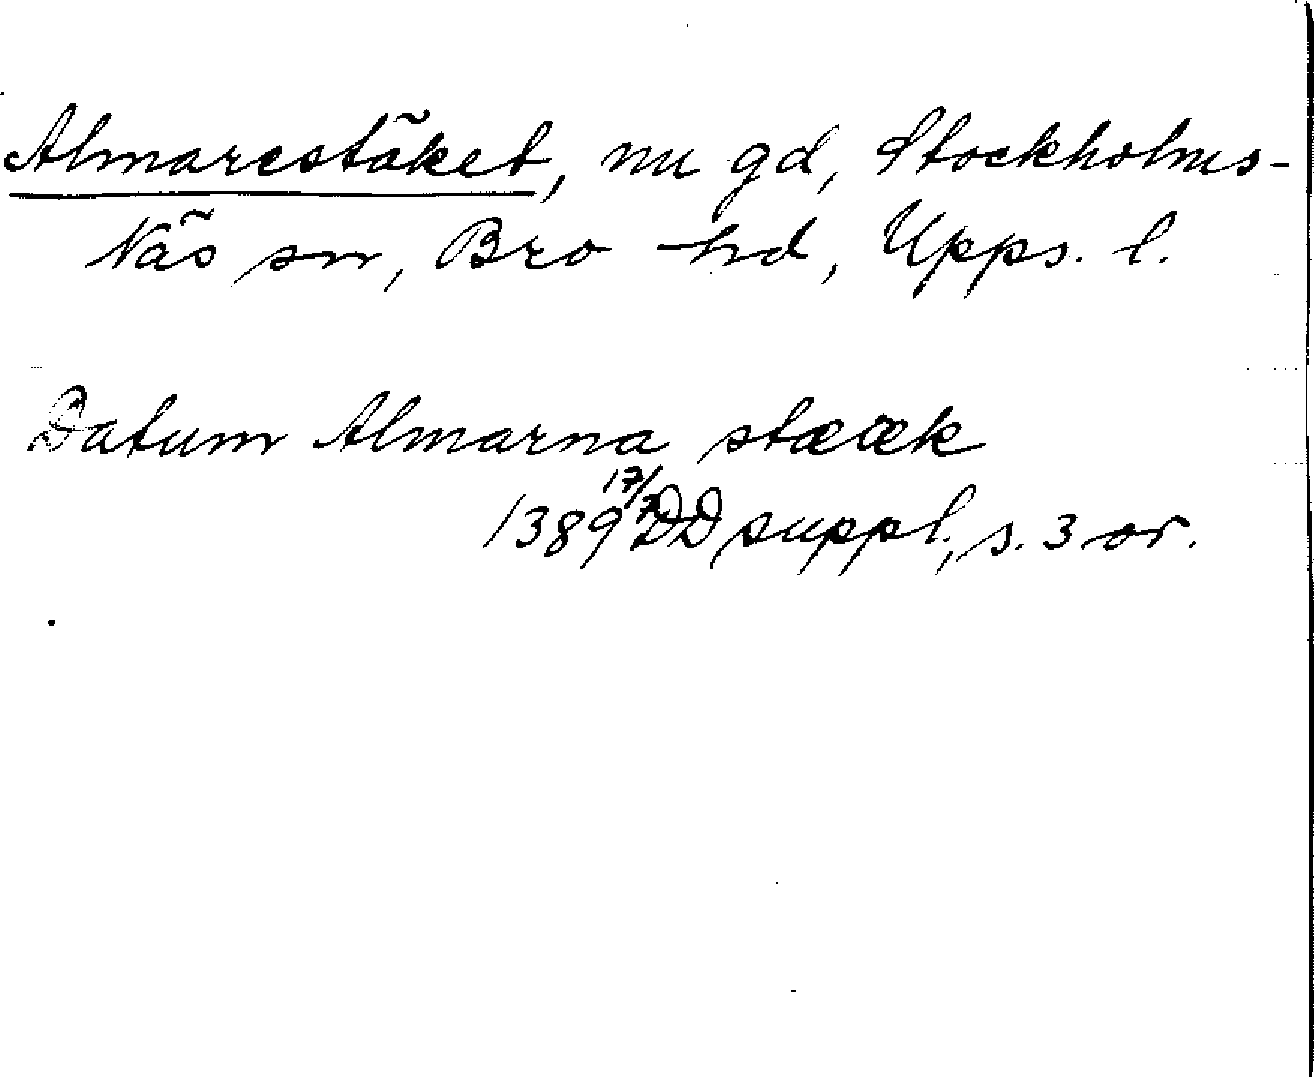 Almarestäket, nu gd, Stockholms-
Näs sn, Bro hd, Upps. l.
Datum Almarna stææk
1389 17/7 DD suppl., s. 3 or.